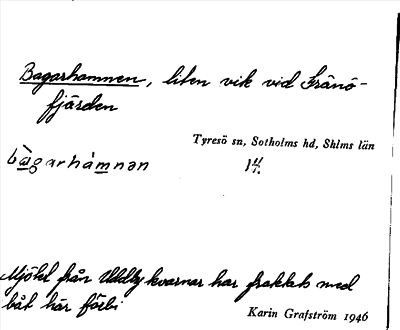 Bagarhamnen, liten vik vid Fränö-
fjärden
Tyresö sn, Sotholms hd, Shlms län
bàgarhàmnən
Mjölet från Uddby kvarnar har fraktats med
båt här förbi
Karin Grafström 1946